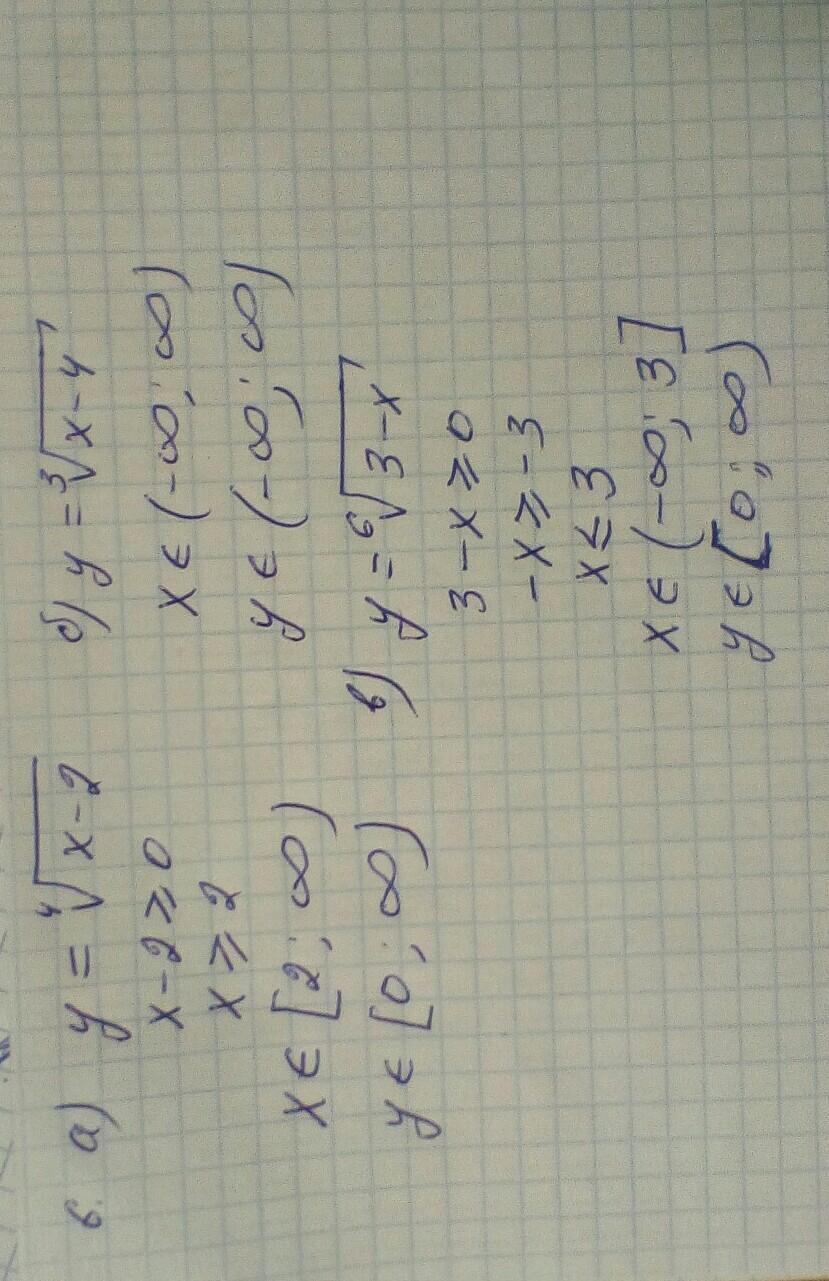 6. а) y = ⁴√(x-2)
x-2 ≥ 0
x ≥ 2
x ∈ [2; ∞)
y ∈ [0; ∞)
б) y = ³√(x-4)
x ∈ (-∞; ∞)
y ∈ (-∞; ∞)
в) y = ⁶√(3-x)
3-x ≥ 0
-x ≥ -3
x ≤ 3
x ∈ (-∞; 3]
y ∈ [0; ∞)